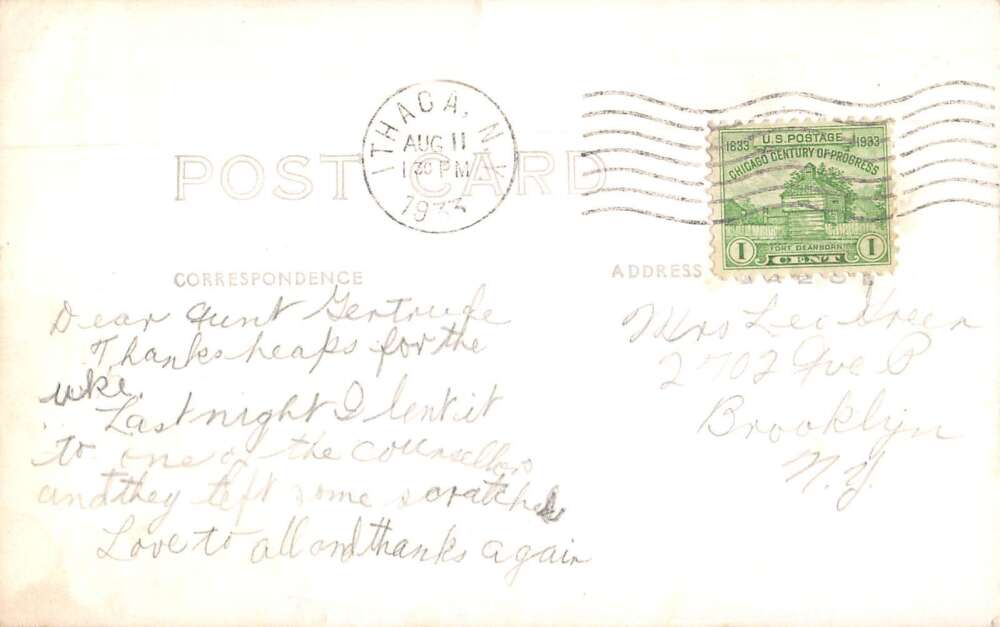 ITHACA, N.Y.
AUG 11
1 30 PM
1933
U.S. POSTAGE
1833 1933
CHICAGO CENTURY OF PROGRESS
FORT DEARBORN
1 CENT 1
POST CARD
CORRESPONDENCE
ADDRESS
Dear Aunt Gertrude
Thanks heaps for the
uke.
Last night I lent it
to one of the counsellors
and they left some scratches
Love to all and thanks again
Mrs Leo Green
2702 Ave P
Brooklyn
N.Y.